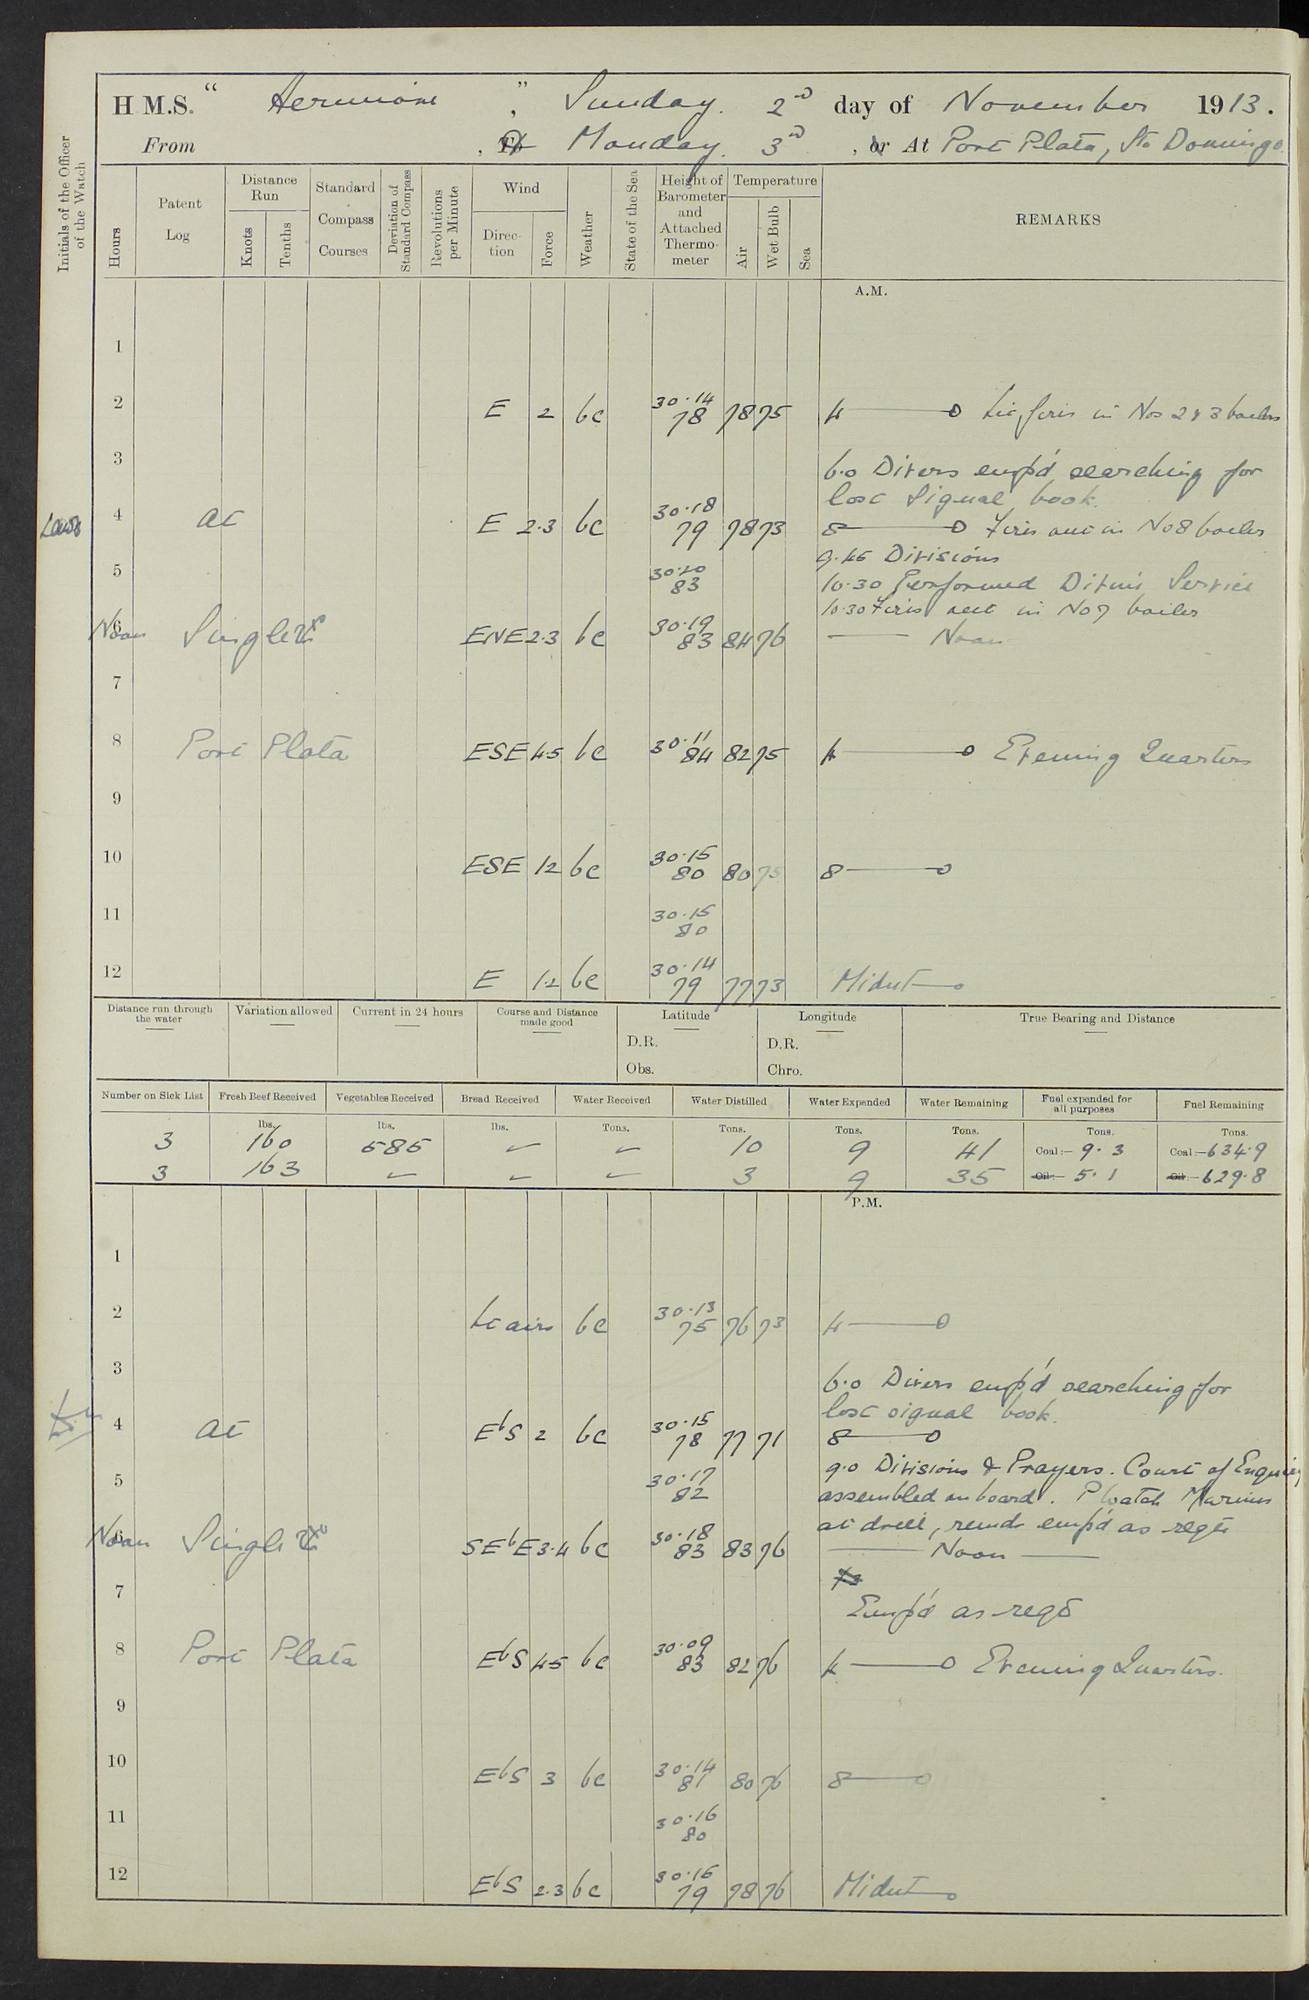 H.M.S. "Hermione", Sunday. 2nd day of November 1913.
From , To Monday 3rd , or At Port Plata, Sto Domingo.
Initials of the Officer of the Watch
Hours
Patent Log
Distance Run
Knots
Tenths
Standard Compass Courses
Deviation of Standard Compass
Revolutions per Minute
Wind
Direction
Force
Weather
State of the Sea
Height of Barometer and Attached Thermometer
Temperature
Air
Wet Bulb
Sea
REMARKS
A.M.
1
2 E 2 bc 30.14 78 78 75 4 Lit fires in Nos 2 & 3 boilers
3 6.0 Divers emp'd searching for
lost Signal book.
4 at E 2.3 bc 30.18 79 78 73 8 Fires out in No 8 boiler
9.45 Divisions
5 30.20 83 10.30 Performed Divine Service
10.30 Fires out in No 7 boiler
6 Noon Single ENE 2.3 bc 30.19 83 84 76 Noon
7
8 Port Plata ESE 4.5 bc 30.11 84 82 75 4 Evening Quarters
9
10 ESE 1.2 bc 30.15 80 80 75 8
11 30.15 80
12 E 1.2 bc 30.14 79 77 73 Midnt
Distance run through the water
Variation allowed
Current in 24 hours
Course and Distance made good
Latitude
D.R.
Obs.
Longitude
D.R.
Chro.
True Bearing and Distance
Number on Sick List
Fresh Beef Received
Vegetables Received
Bread Received
Water Received
Water Distilled
Water Expended
Water Remaining
Fuel expended for all purposes
Fuel Remaining
lbs. lbs. lbs. Tons. Tons. Tons. Tons. Tons. Tons.
3 160 585 – – 10 9 41 Coal:– 9.3 Coal:– 634.9
3 163 – – – 3 9 35 Oil:– 5.1 Oil:– 629.8
P.M.
1
2 Lt airs bc 30.13 75 76 73 4
3 6.0 Divers emp'd searching for
lost signal book.
4 at EbS 2 bc 30.15 78 77 71 8
5 30.17 82 9.0 Divisions & Prayers. Court of Enquiry
assembled on board. P Watch Marines
at drill, remdr emp'd as reqte
6 Noon Single SEbE 3.4 bc 30.18 83 83 76 Noon
7
Emp'd as reqd
8 Port Plata EbS 4.5 bc 30.09 83 82 76 4 Evening Quarters.
9
10 EbS 3 bc 30.14 81 80 76 8
11 30.16 80
12 EbS 2.3 bc 30.16 79 78 76 Midnt